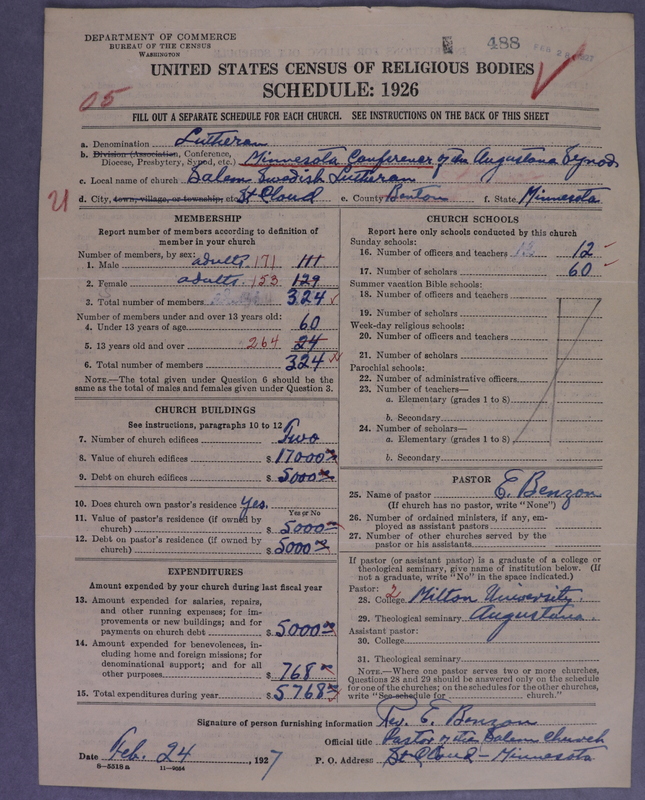 DEPARTMENT OF COMMERCE
BUREAU OF THE CENSUS
WASHINGTON
488
UNITED STATES CENSUS OF RELIGIOUS BODIES
SCHEDULE: 1926
05
FILL OUT A SEPARATE SCHEDULE FOR EACH CHURCH. SEE INSTRUCTIONS ON THE BACK OF THIS SHEET
a. Denomination Lutheran
b. Division (Association, Conference, Diocese, Presbytery, Synod, etc.) Minnesota Conference of the Augustana Synod
c. Local name of church Salem Swedish Lutheran
d. City, town, village, or township, etc. St Cloud e. County Benton f. State Minnesota
MEMBERSHIP
Report number of members according to definition of
member in your church
Number of members, by sex:
1. Male adults 171 111
2. Female adults 153 129
3. Total number of members 324
Number of members under and over 13 years old:
4. Under 13 years of age 60
5. 13 years old and over 264 24
6. Total number of members 324
NOTE.—The total given under Question 6 should be the
same as the total of males and females given under Question 3.
CHURCH BUILDINGS
See instructions, paragraphs 10 to 12
7. Number of church edifices Two
8. Value of church edifices $ 17000
9. Debt on church edifices $ 5000
10. Does church own pastor's residence yes.
Yes or No
11. Value of pastor's residence (if owned by
church) $ 5000
12. Debt on pastor's residence (if owned by
church) $ 5000
EXPENDITURES
Amount expended by your church during last fiscal year
13. Amount expended for salaries, repairs,
and other running expenses; for im-
provements or new buildings; and for
payments on church debt $ 5000
14. Amount expended for benevolences, in-
cluding home and foreign missions; for
denominational support; and for all
other purposes $ 768
15. Total expenditures during year $ 5768
CHURCH SCHOOLS
Report here only schools conducted by this church
Sunday schools:
16. Number of officers and teachers 12
17. Number of scholars 60
Summer vacation Bible schools:
18. Number of officers and teachers
19. Number of scholars
Week-day religious schools:
20. Number of officers and teachers
21. Number of scholars
Parochial schools:
22. Number of administrative officers
23. Number of teachers—
a. Elementary (grades 1 to 8)
b. Secondary
24. Number of scholars—
a. Elementary (grades 1 to 8)
b. Secondary
PASTOR
25. Name of pastor E. Benzon
(If church has no pastor, write "None")
26. Number of ordained ministers, if any, em-
ployed as assistant pastors
27. Number of other churches served by the
pastor or his assistants
If pastor (or assistant pastor) is a graduate of a college or
theological seminary, give name of institution below. (If
not a graduate, write "No" in the space indicated.)
Pastor: 2
28. College Milton University.
29. Theological seminary Augustana.
Assistant pastor:
30. College
31. Theological seminary
NOTE.—Where one pastor serves two or more churches,
Questions 28 and 29 should be answered only on the schedule
for one of the churches; on the schedules for the other churches,
write "See schedule for church."
Signature of person furnishing information Rev. E. Benzon
Official title Pastor of the Salem Church
Date Feb. 24, 1927 P. O. Address St Cloud - Minnesota
8—5518a 11—9054